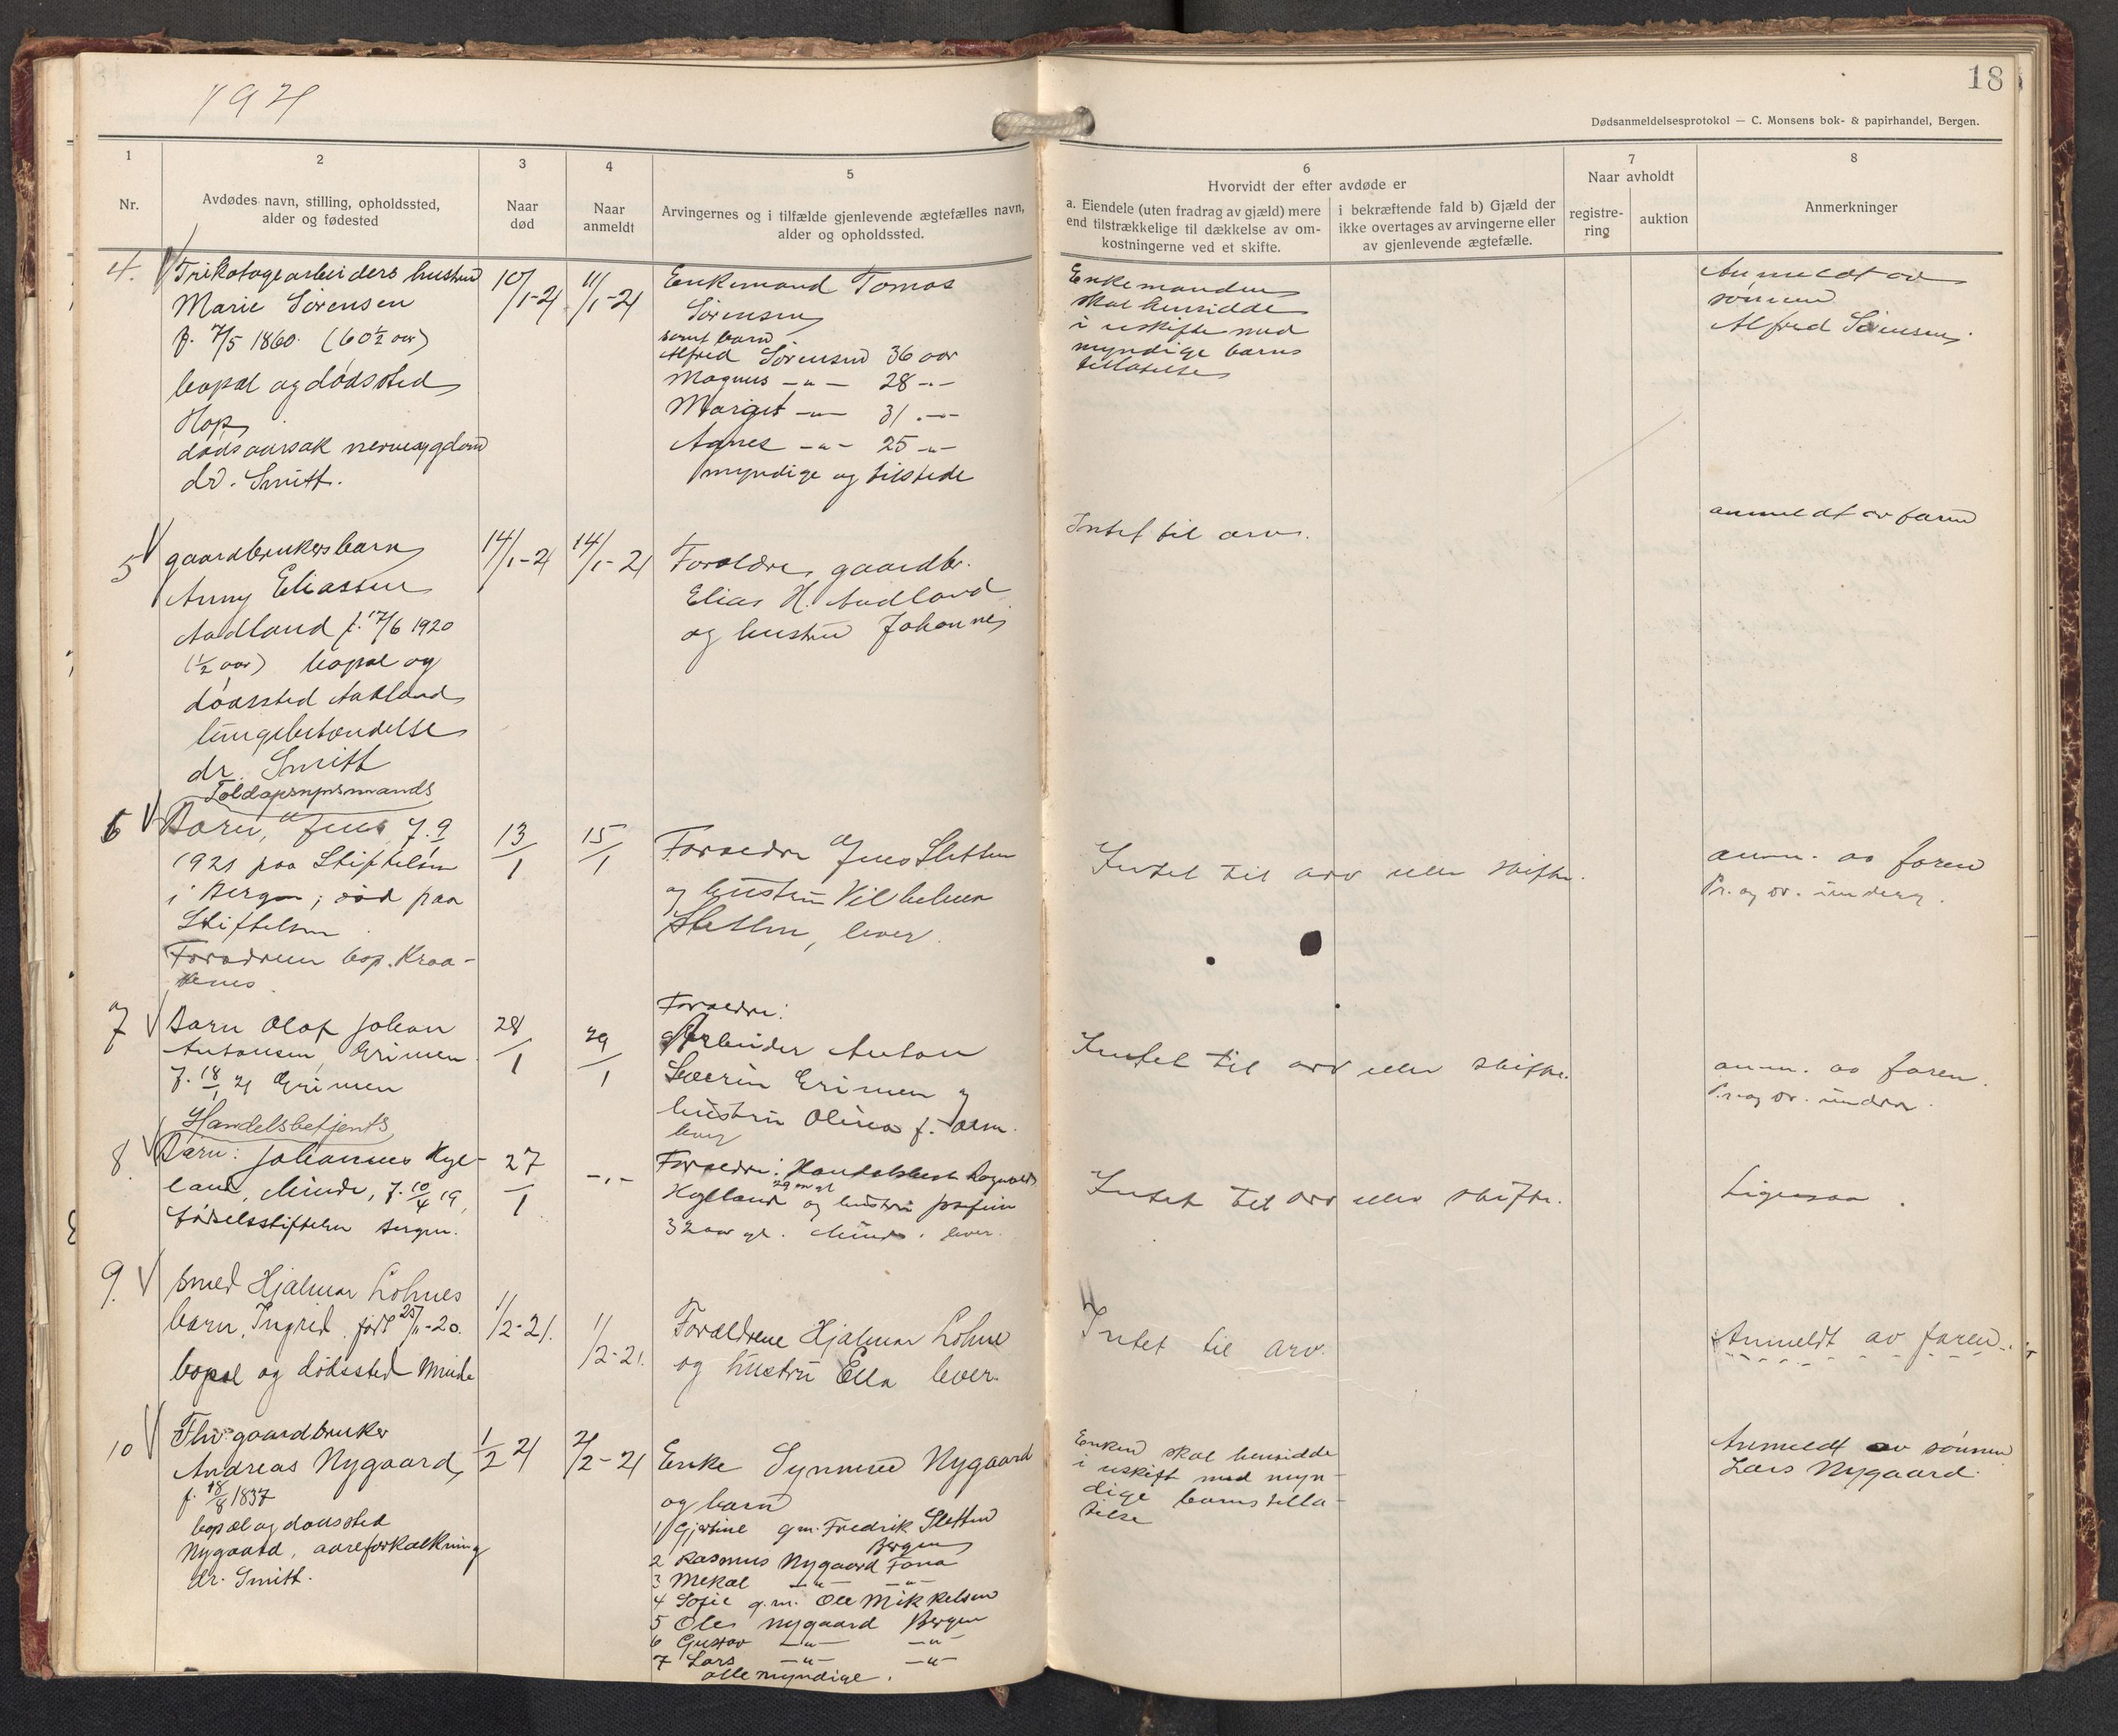 1921
18
Dødsanmeldelsesprotokol — C. Monsens bok- & papirhandel, Bergen.
1
Nr.
2
Avdødes navn, stilling, opholdssted,
alder og fødested
3
Naar
død
4
Naar
anmeldt
5
Arvingernes og i tilfælde gjenlevende ægtefælles navn,
alder og opholdssted.
6
Hvorvidt der efter avdøde er
a. Eiendele (uten fradrag av gjæld) mere
end tilstrækkelige til dækkelse av om-
kostningerne ved et skifte.
i bekræftende fald b) Gjæld der
ikke overtages av arvingerne eller
av gjenlevende ægtefælle.
7
Naar avholdt
registre-
ring
auktion
8
Anmerkninger
4.
Trikotagearbeiders hustru
Marie Sørensen
f. 7/5 1860. (60½ aar)
bopæl og dødssted
Hop
dødsaarsak nervesygdom
dr. Smitt.
10/1-21
11/1-21
Enkemand Tomas
Sørensen
samt barn
Alfred Sørensen 36 aar
Magnus -"- 28 -"-
Margit -"- 31 -"-
Agnes -"- 25 -"-
myndige og tilstede
Enkemanden
skal hensidde
i uskifte med
myndige barns
tillatelse
Anmeldt av
sønnen
Alfred Sørensen.
5
gaardbrukers barn
Anny Eliassen
Aadland f. 17/6 1920
(½ aar) bopæl og
dødssted Aadland
lungebetændelse
dr. Smitt
14/1-21
14/1-21
Forældre, gaardbr.
Elias H. Aadland
og hustru Johanne
Intet til arv.
anmeldt av faren
6
Toldopsynsmands
Barn, Jens, f. 9
1921 paa Stiftelsen
i Bergen; død paa
Stiftelsen
Forældrene bop. Kraa-
kenes
13/1
15/1
Forældre Jens Sletten
og hustru Vilhelmine
Sletten, lever.
Intet til arv eller skifte.
anm. av faren
Pr. og ov. underr.
7
Barn Olaf Johan
Antonsen, Grimen
f. 18/1 21 Grimen
28/1
29/1
Forældre:
Arbeider Anton
Severin Grimen og
hustru Olina f.
lever
Intet til arv eller skifte.
anm. av faren.
Pr. og ov. underr.
8.
Handelsbetjents
Barn: Johannes Hyl-
land, Minde, f. 10/4 19,
Fødselsstiftelsen Bergen.
27/1
-"-
Forældre: Handelsbetj. Ragnvald
Hylland 29 aar gl. og hustru Josefine
32 aar gl. Minde. lever.
Intet til arv eller skifte.
Ligesaa.
9.
Smed Hjalmar Lohnes
barn, Ingrid, født 25/11-20.
bopæl og dødssted Minde
1/2-21.
1/2-21.
Forældrene Hjalmar Lohne
og hustru Ella lever.
Intet til arv.
Anmeldt av faren.
10
Fhv. gaardbruker
Andreas Nygaard,
f. 18/8 1837
bopæl og dødssted
Nygaard, aareforkalkning
dr. Smitt.
1/2 21
2/2-21
Enke Synneve Nygaard
og barn
1 Gjertine gm. Fredrik Sletten
Bergen
2 Rasmus Nygaard Fana
3 Mikal -"- -"-
4 Sofie g.m. Ole Mikkelsen
5 Ole Nygaard Bergen
6 Gustav -"- -"-
7 Lars -"- -"-
alle myndige.
Enken skal hensidde
i uskift med myn-
dige barns tilla-
telse
Anmeldt av sønnen
Lars Nygaard.